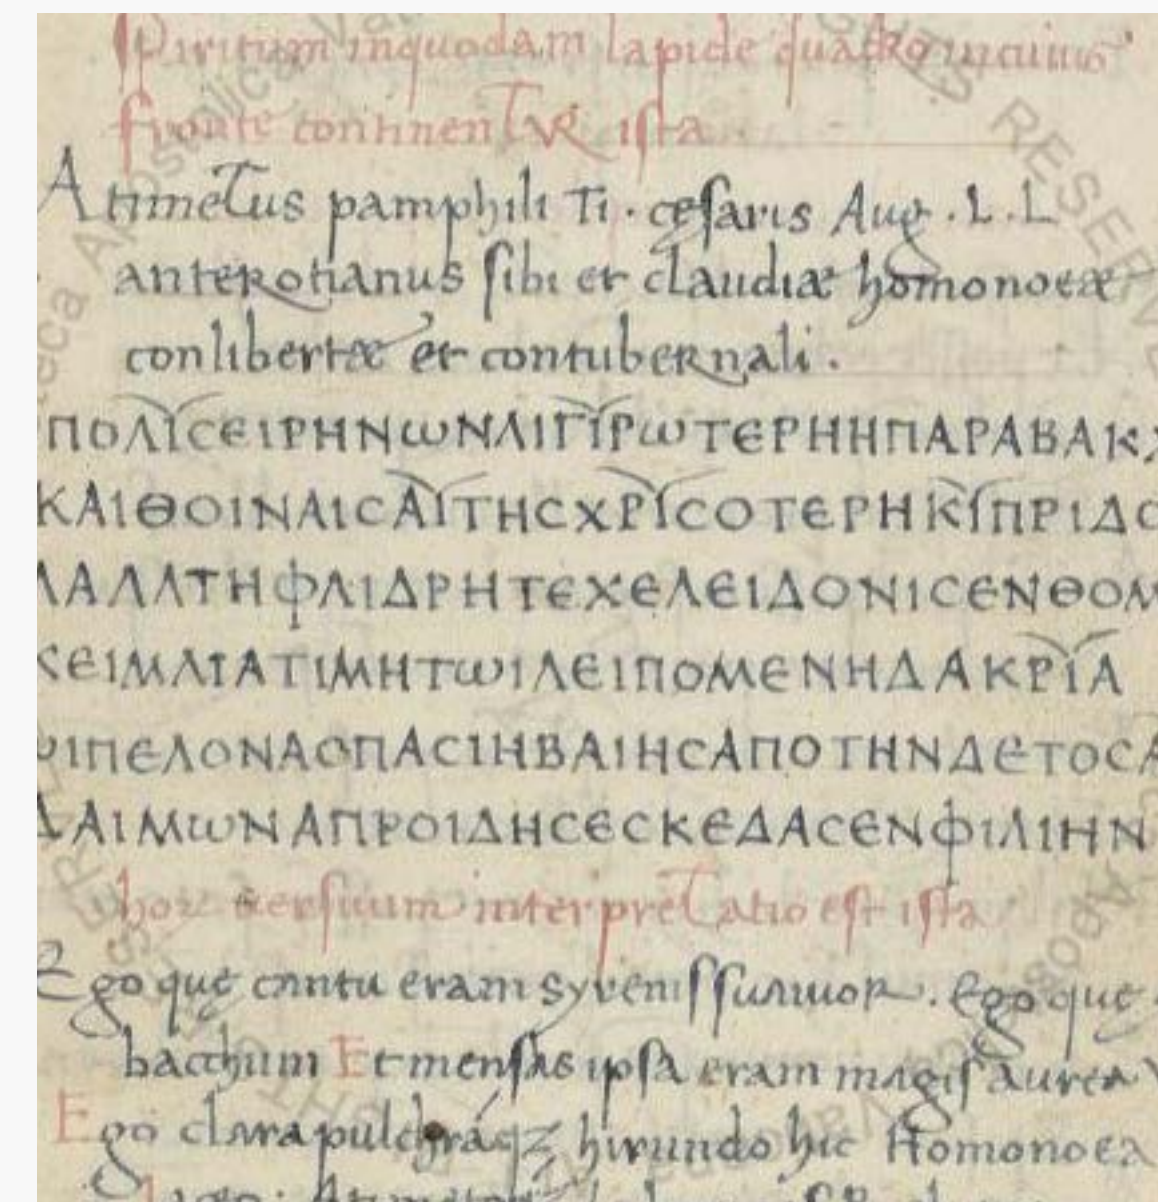 Spiritum inquodam lapide quadro incuius
fronte continentur ista
Atimetus pamphili Ti. cęsaris Aug. L. L
anterotianus sibi et claudiæ homonoeæ
conlibertæ et contubernali.
ΠΟΛΥCΕΙΡΗΝωΝΛΙΓΥΡωΤΕΡΗΗΠΑΡΑΒΑΚΧ
ΚΑΙΘΟΙΝΑΙCΑΥΤΗCΧΡΥCΟΤΕΡΗΚΥΠΡΙΔΟ
ΛΑΛΛΤΗΦΛΙΔΡΗΤΕΧΕΛΕΙΔΟΝΙCΕΝΘΟΜ
ΚΕΙΜΛΙΑΤΙΜΗΤωΙΛΕΙΠΟΜΕΝΗΔΑΚΡΥΑ
ΙΠΕΛΟΝΑΟΠΑCΙΗΒΑΙΗCΑΠΟΤΗΝΔΕΤΟCΑ
ΔΑΙΜωΝΑΠΡΟΙΔΗCΕCΚΕΔΑCΕΝΦΙΛΙΗΝ
hor uersuum interpretatio est ista
Ego quę cantu eram syrenis suauior. Ego quę
bacchum Et mensas ipsa eram magis aurea
Ego clara pulchráqz hirundo hic Homonoea